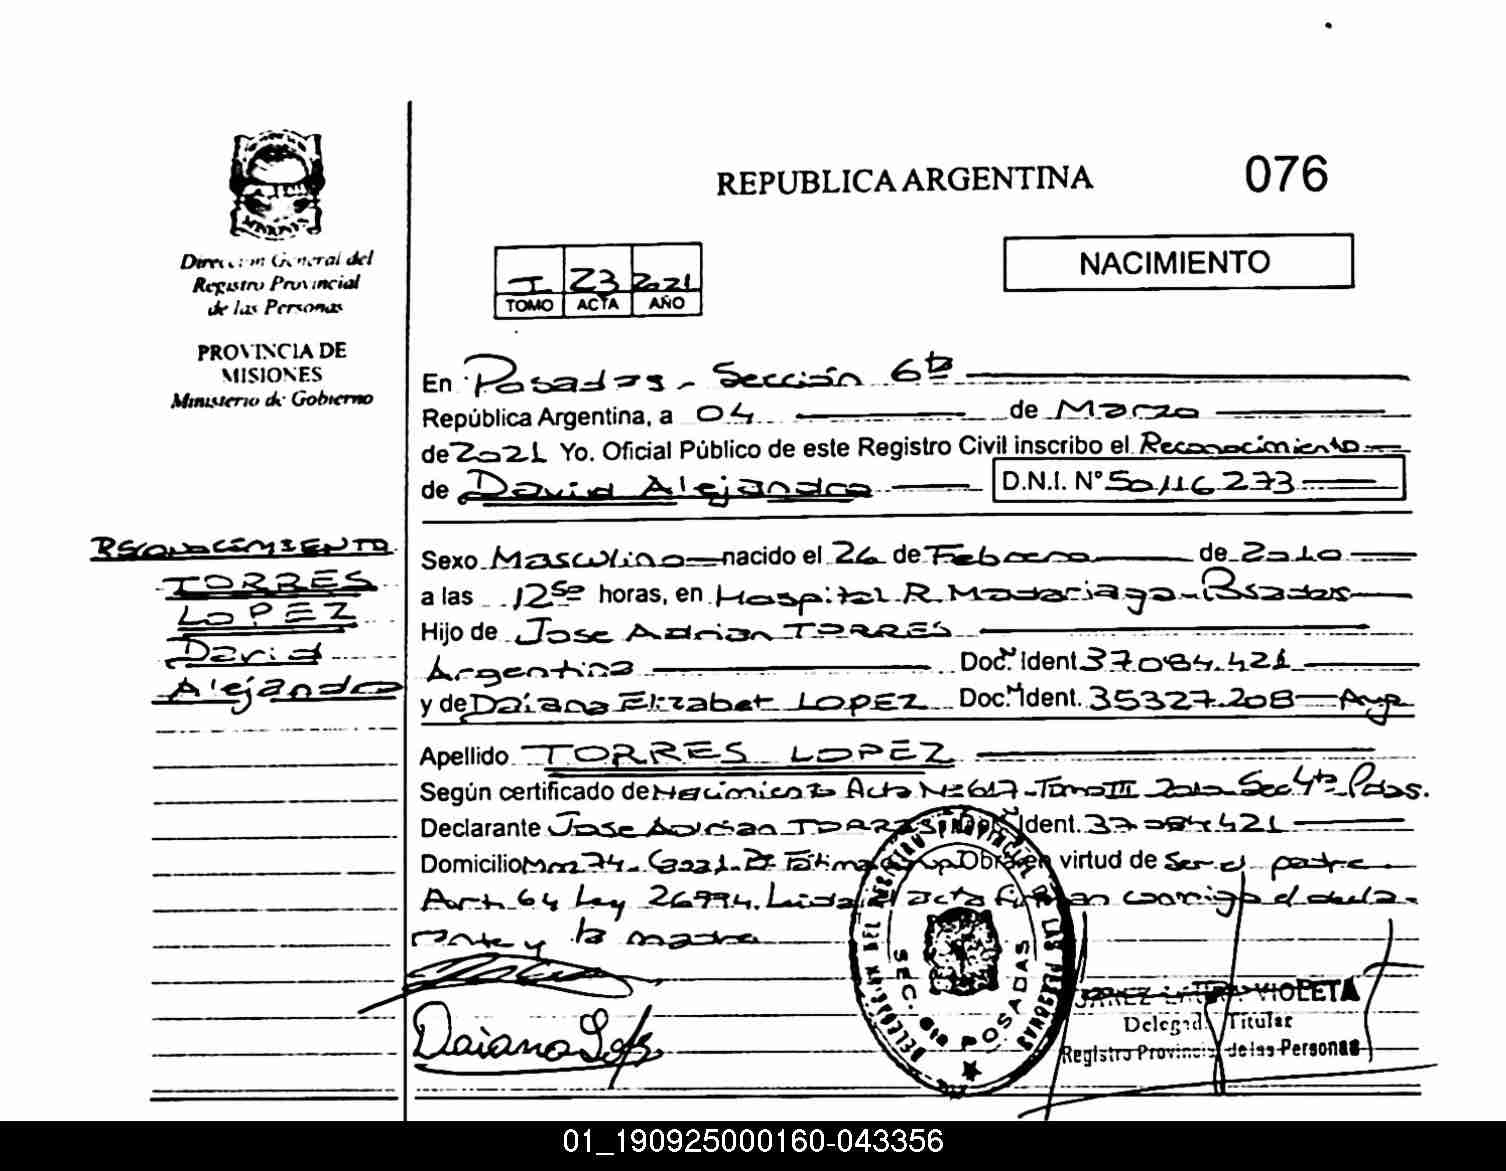 REPUBLICA ARGENTINA
076
Dirección General del
Registro Provincial
de las Personas
PROVINCIA DE
MISIONES
Ministerio de Gobierno
NACIMIENTO
I 23 2021
TOMO ACTA AÑO
En Posadas - Sección 6ta
República Argentina, a 04 de Marzo
de 2021 Yo. Oficial Público de este Registro Civil inscribo el Reconocimiento
de David Alejandro D.N.I. Nº 50.116.273
RECONOCIMIENTO
TORRES
LOPEZ
David
Alejandro
Sexo Masculino nacido el 26 de Febrero de 2010
a las 12 horas, en Hospital R. Madariaga - Posadas
Hijo de Jose Adrian TORRES
Argentina Doc. Ident. 37.084.421
y de Daiana Elizabet LOPEZ Doc. Ident. 35327.208 Arg
Apellido TORRES LOPEZ
Según certificado de Nacimiento Acta Nº 617 - Tomo III 2010 Sec 4ta Pdas.
Declarante Jose Adrian TORRES Doc. Ident. 37.084.421
Domicilio Fátima Obra en virtud de Ser el padre
Art. 64 Ley 26994. Leida el acta firman conmigo el decla-
rante y la madre
Daiana
DELEGACION DEL REGISTRO PROVINCIAL DE LAS PERSONAS
SEC. 6ta POSADAS
VIOLETA
Delegada Titular
Registro Provincial de las Personas
01_190925000160-043356